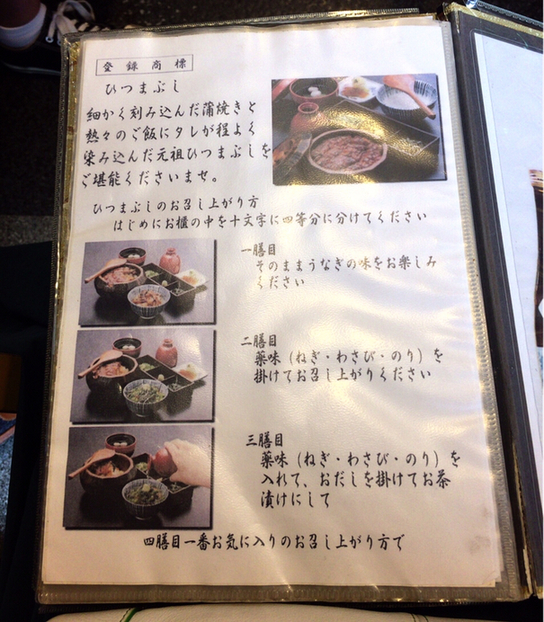 登録商標
ひつまぶし
細かく刻み込んだ蒲焼きと
熱々のご飯にタレが程よく
染み込んだ元祖ひつまぶしを
ご堪能くださいませ。
ひつまぶしのお召し上がり方
はじめにお櫃の中を十文字に四等分に分けてください
一膳目
そのままうなぎの味をお楽しみ
ください
二膳目
薬味（ねぎ・わさび・のり）を
掛けてお召し上がりください
三膳目
薬味（ねぎ・わさび・のり）を
入れて、おだしを掛けてお茶
漬けにして
四膳目一番お気に入りのお召し上がり方で